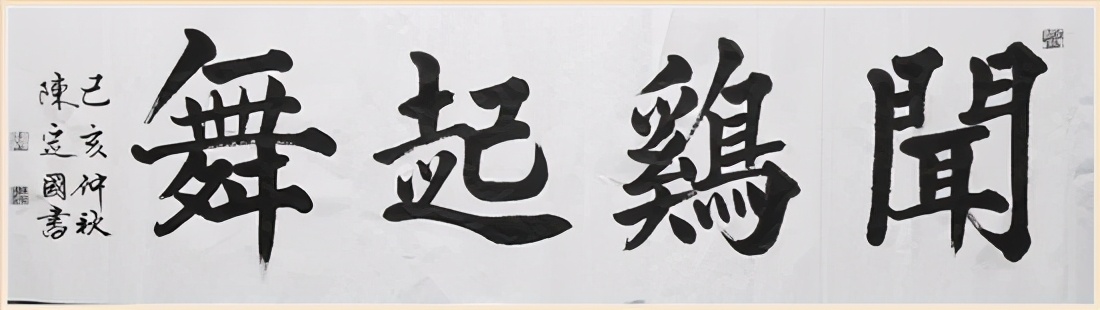 聞鷄起舞
己亥仲秋
陳定國書